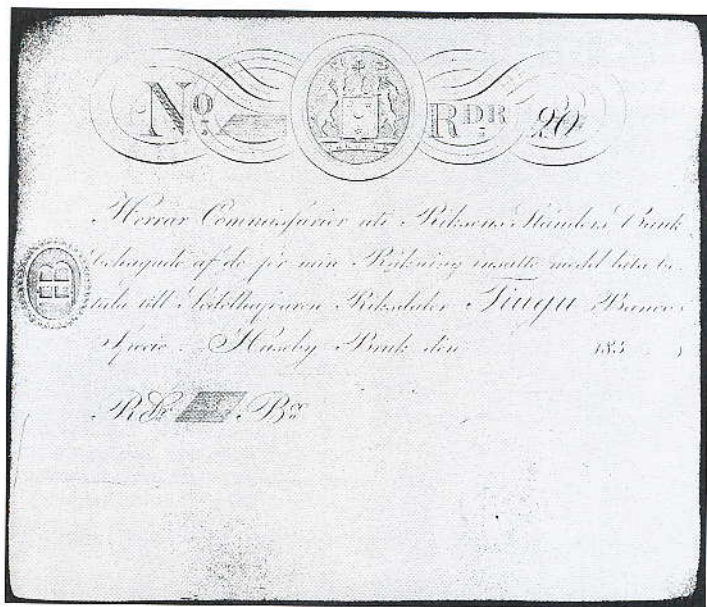 No. RDR 20
Herrar Commissarier uti Riksens Ständers Bank
behagade af de för min Räkning insatte medel låta be-
tala till Sedelhafvaren Riksdaler Tjugu Banco
Specie. Huseby Bruk den 185
HB
RDr Bco